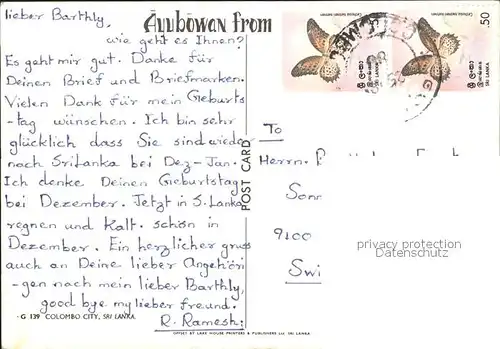 lieber Barthly,
Āyubōwan from
wie geht es Ihnen?
Es geht mir gut. Danke für
Deinen Brief und Briefmarken.
Vielen Dank für mein Gieburts
-tag wünschen. Ich bin sehr
glücklich dass Sie sind wieder
nach Sri Lanka bei Dez-Jan.
Ich denke Deinen Gieburtstag
bei Dezember. Jetzt in S. Lanka
regnen und Kalt. schön in
Dezember. Ein herzlicher gruss
auch an Deine lieber Angehöri
-gen nach mein lieber Barthly,
good bye my lieber freund.
R. Ramesh;
G 139 COLOMBO CITY, SRI LANKA
OFFSET BY LAKE HOUSE PRINTERS & PUBLISHERS LTD. SRI LANKA
POST CARD
ශ්‍රී ලංකා
இலங்கை
SRI LANKA
ශ්‍රී ලංකා
இலங்கை
SRI LANKA
.50
To
Herrn.
Sonn
9100
Swi
privacy protection
Datenschutz